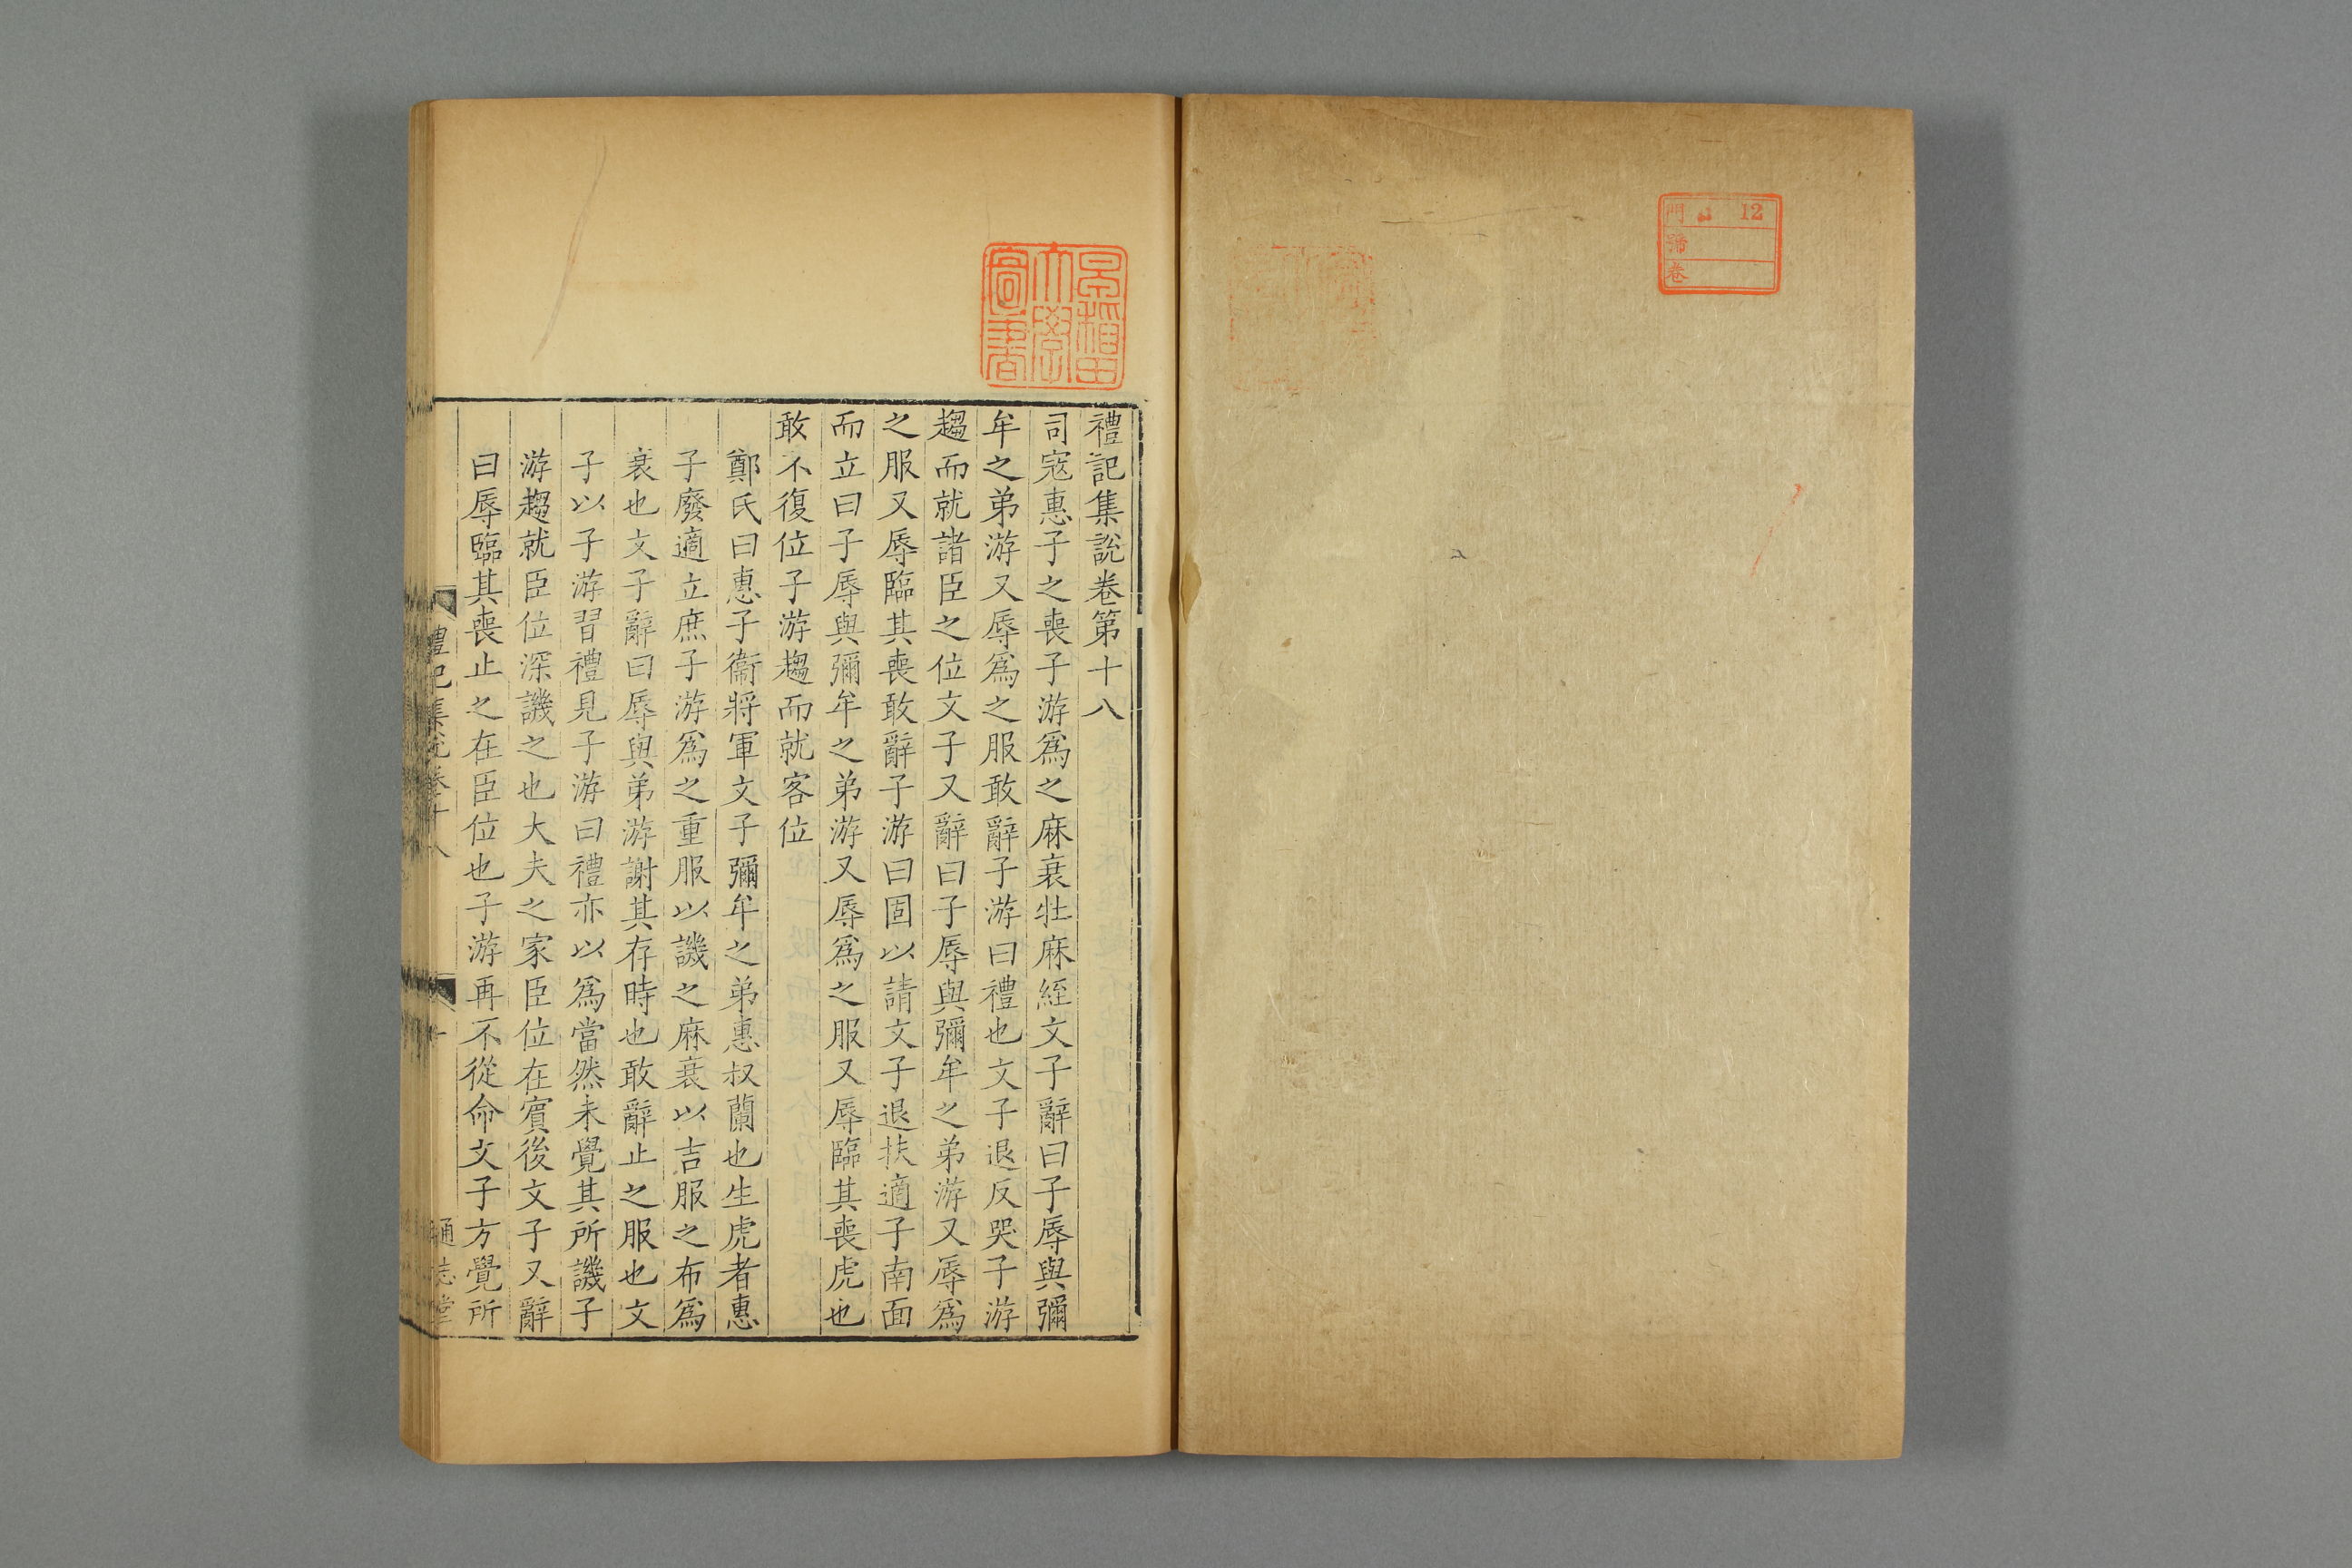 門 12
號
卷
早稲田
大學
圖書
禮記集說卷第十八
司寇惠子之喪子游爲之麻衰牡麻絰文子辭曰子辱與彌
牟之弟游又辱爲之服敢辭子游曰禮也文子退反哭子游
趨而就諸臣之位文子又辭曰子辱與彌牟之弟游又辱爲
之服又辱臨其喪敢辭子游曰固以請文子退扶適子南面
而立曰子辱與彌牟之弟游又辱爲之服又辱臨其喪虎也
敢不復位子游趨而就客位
鄭氏曰惠子衞將軍文子彌牟之弟惠叔蘭也生虎者惠
子廢適立庶子游爲之重服以譏之麻衰以吉服之布爲
衰也文子辭曰辱與弟游謝其存時也敢辭止之服也文
子以子游習禮見子游曰禮亦以爲當然未覺其所譏子
游趨就臣位深譏之也大夫之家臣位在賓後文子又辭
曰辱臨其喪止之在臣位也子游再不從命文子方覺所
禮記集說卷十八 一 通志堂